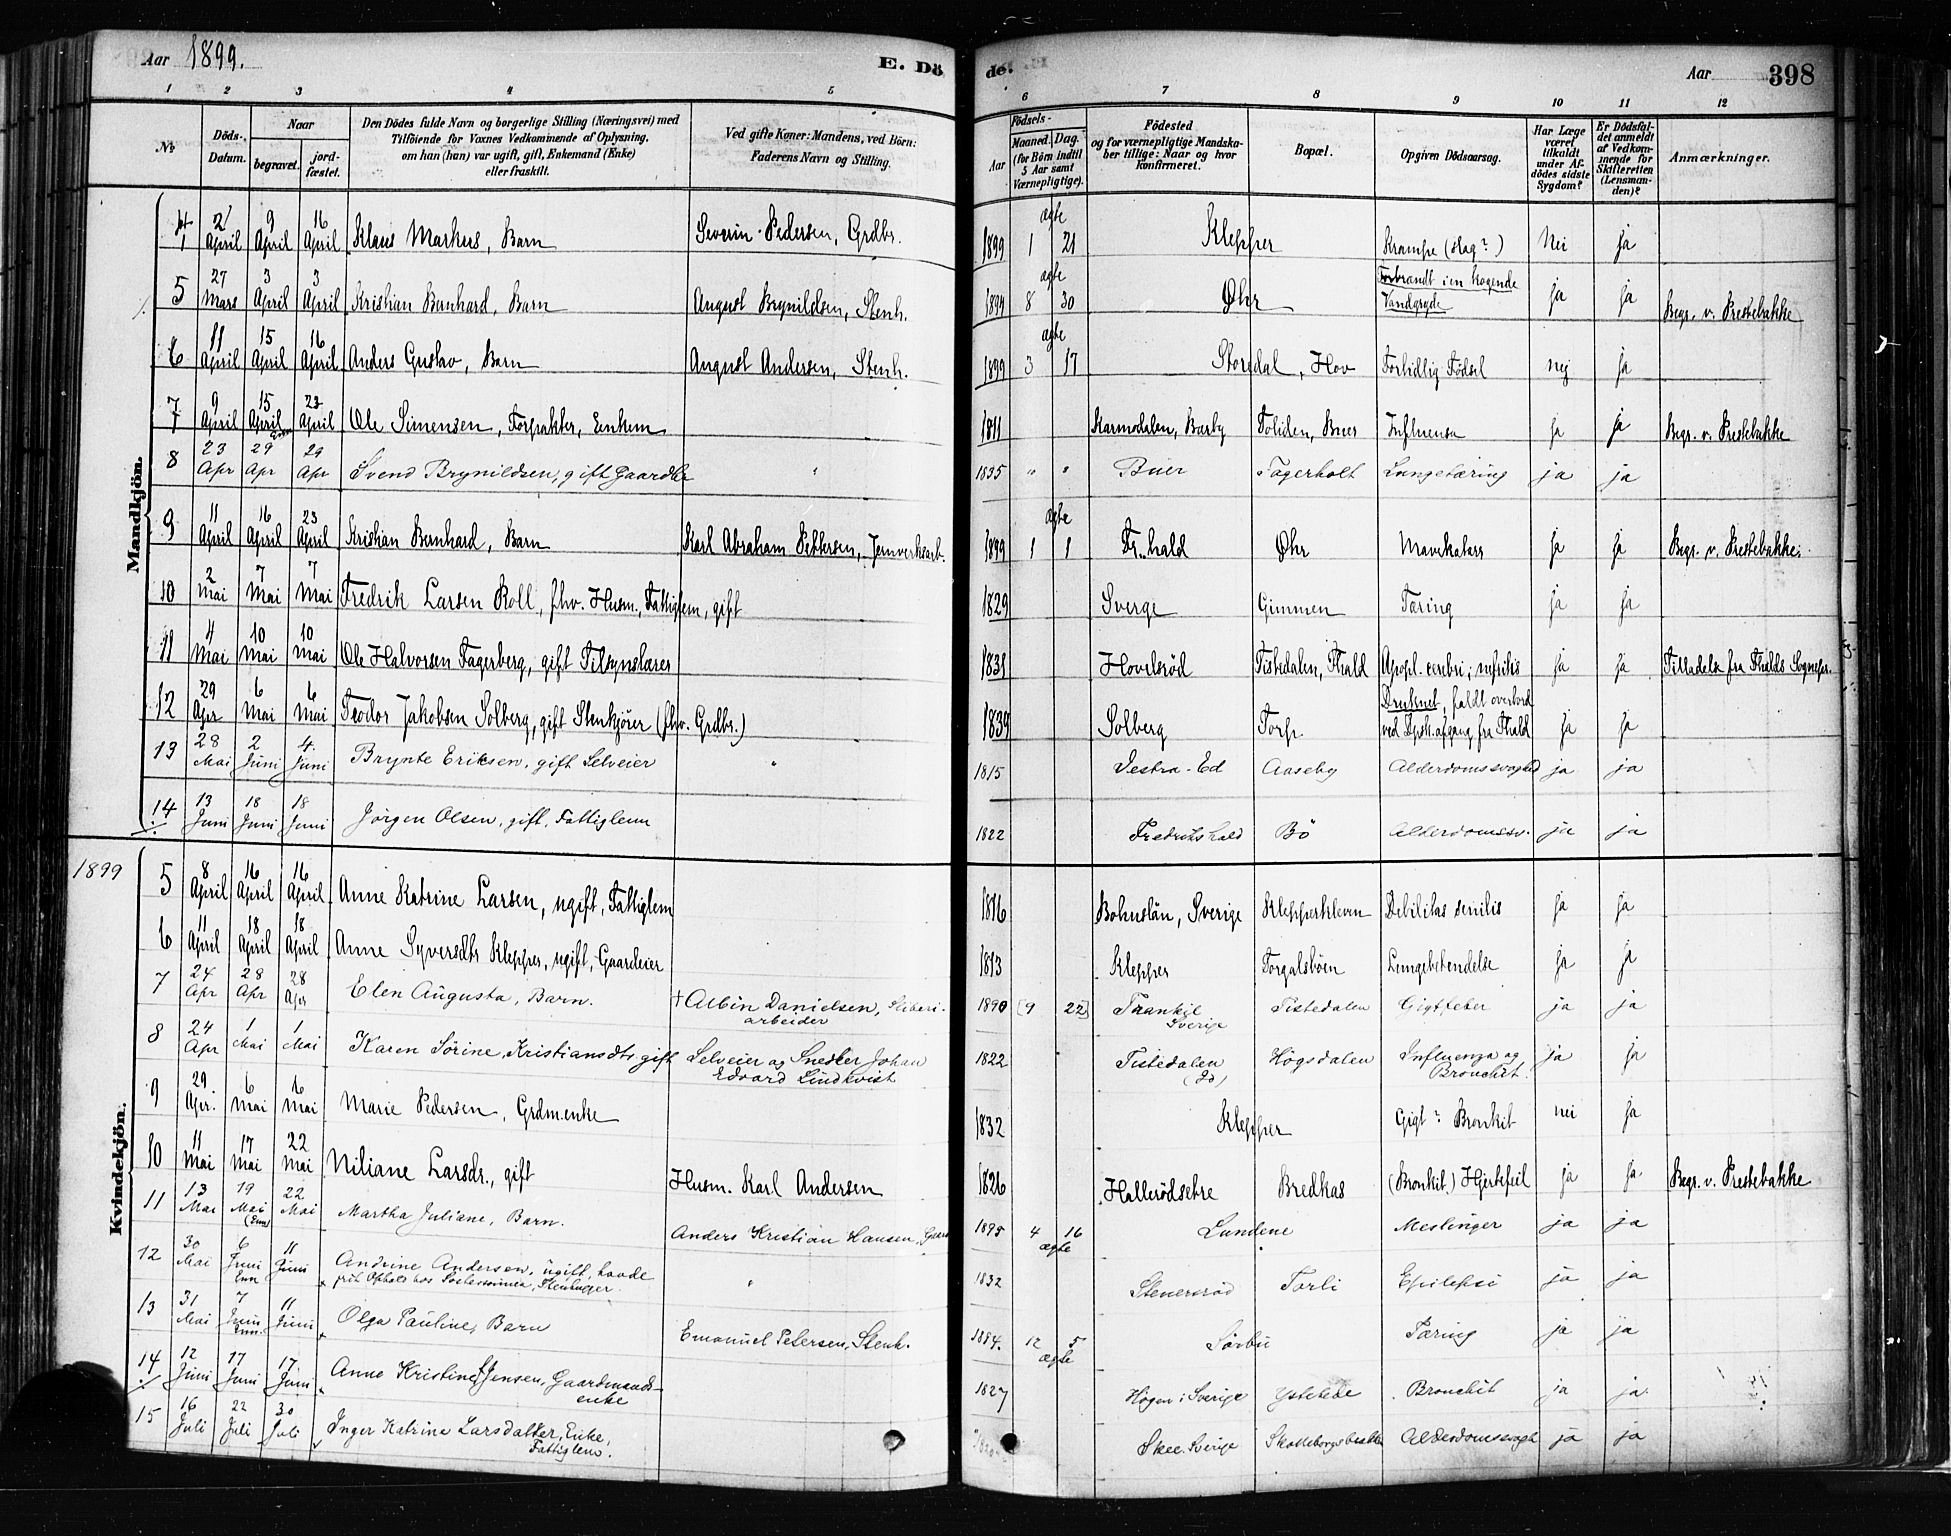 Aar 1899. E. Dö
de. Aar 398
1 2 3 4 5
6 7 8 9 10 11 12
№ Döds-Datum. Naar begravet. jordfæstet. Den Dödes fulde Navn og borgerlige Stilling (Næringsvei) med Tilföiende for Voxnes Vedkommende af Oplysning, om han (hun) var ugift, gift, Enkemand (Enke) eller fraskilt. Ved gifte Koner: Mandens, ved Börn: Faderens Navn og Stilling.
Födsels- Aar Maaned. Dag. (for Börn indtil 5 Aar samt Værnepligtige). Födested og for værnepligtige Mandskaber tillige: Naar og hvor konfirmeret. Bopæl. Opgiven Dödsaarsag. Har Læge været tilkaldt under Afdödes sidste Sygdom? Er Dödsfaldet anmeldt af Vedkommende for Skifteretten (Lensmanden)? Anmærkninger.
Mandkjön.
4 2/April 9 April 16 April Klaus Markus, Barn Severin Pedersen, Grdbr. 1899 1 21 ægte Klepper Krampe (slag?) Nei ja
5 27 Mars 3 April 3 April Kristian Bernhard, Barn August Brynildsen, Stenh. 1894 8 30 ægte Øhr Forbrandt i en kogende Vandgryde ja ja Begr. v. Prestebakke
6 11 April 15 April 16 April Anders Gustav, Barn August Andersen, Stenh. 1899 3 17 ægte Storedal, Hov Fortidlig Fødsel nej ja
7 9 April 15 April 23 April Ole Simensen, Forpakter, Enkem 1811 Karmodalen, Barby Foliden, Buer Influensa ja ja Begr. v. Prestebakke
8 23 Apr 29 Apr 29 Apr Svend Brynildsen, gift Gaardbr " 1835 " " Buer Fagerholt Lungetæring ja ja
9 11 April 16 April 23 April Kristian Bernhard, Barn Karl Abraham Pettersen, Jernverksarb. 1899 1 1 ægte Fr.hald Øhr Mavekatarr ja ja Begr. v. Prestebakke.
10 2 Mai 7 Mai 7 Mai Fredrik Larsen Roll, fhv. Husm., Fattiglem, gift 1829 Sverge Gimmen Tæring ja ja
11 4 Mai 10 Mai 10 Mai Ole Halvorsen Fagerberg, gift Tilsynslærer 1831 Hovelsröd Tistedalen, Fhald Apopl. cerebri; nefritis ja ja Tilladelse fra Fhalds Sognepr.
12 29 Apr 6 Mai 6 Mai Teodor Jakobsen Solberg, gift Stenkjörer (fhv. Grdbr.) 1839 Solberg Torp. Druknet, faldt overbord ved Dpsk. afgang fra Fhald ja ja
13 28 Mai 2 Juni 4. Juni Brynte Eriksen, gift Selveier " 1815 Vestra-Ed Aaseby Alderdomssvaghed ja ja
14 13 Juni 18 Juni 18 Juni Jörgen Olsen, gift, Fattiglem 1822 Fredrikshald Bö Alderdomssv. ja ja
1899
Kvindekjön.
5 8 April 16 April 16 April Anne Katrine Larsen, ugift, Fattiglem 1816 Bohuslän, Sverige Klepperkleven Debilitas senilis ja ja
6 11 April 18 April 18 April Anne Syversdtr Klepper, ugift, Gaardeier 1813 Klepper Torgalsböen Lungebetendelse ja ja
7 24 Apr 28 Apr 28 Apr Elen Augusta, Barn. † Albin Danielsen, Sliberiarbeider 1890 [9 22] Tanankil Sverige Tistedalen Gigtfeber ja ja
8 24 Apr 1 Mai 1 Mai Karen Sörine Kristiansdtr, gift Selveier og Snedker Johan Edvard Lindkvist 1822 Tistedalen (Id) Högsdalen Influenza og Bronchit. ja ja
9 29. Apr. 6 Mai 6 Mai Marie Pedersen, Grdm.enke 1832 Klepper Gigt? Bronkit nei ja
10 11 Mai 17 Mai 22 Mai Niliane Larsdr., gift Husm. Karl Andersen 1826 Hallerödsetre Bredkas (Bronkit.) Hjertefeil ja ja Begr. v. Prestebakke
11 13 Mai 19 Mai 22 Mai Martha Juliane, Barn. Anders Kristian Hansen, Gaard 1895 4 16 ægte Lundene Meslinger ja ja
12 30 Mai 6 Juni 11 Juni Andrine Andersen, ugift, havde frit Ophold hos Stenhugger. " 1832 Stenersröd Torli Epilepsi ja ja
13 31 Mai 7 Juni 11 Juni Olga Pauline, Barn Emanuel Petersen, Stenh. 1884. 12 5 ægte Sörbü Tæring ja ja
14 12 Juni 17 Juni 17. Juni Anne Kristine Jensen, Gaardmandsenke 1827 Högen i Sverige Ystehede Bronchit ja ja.
15 16 Juli 22 Juli 30 Juli Inger Katrine Larsdatter, Enke, Fattiglem. Skee. Sverige Skotteborgsbakke Alderdomssvagh ja ja